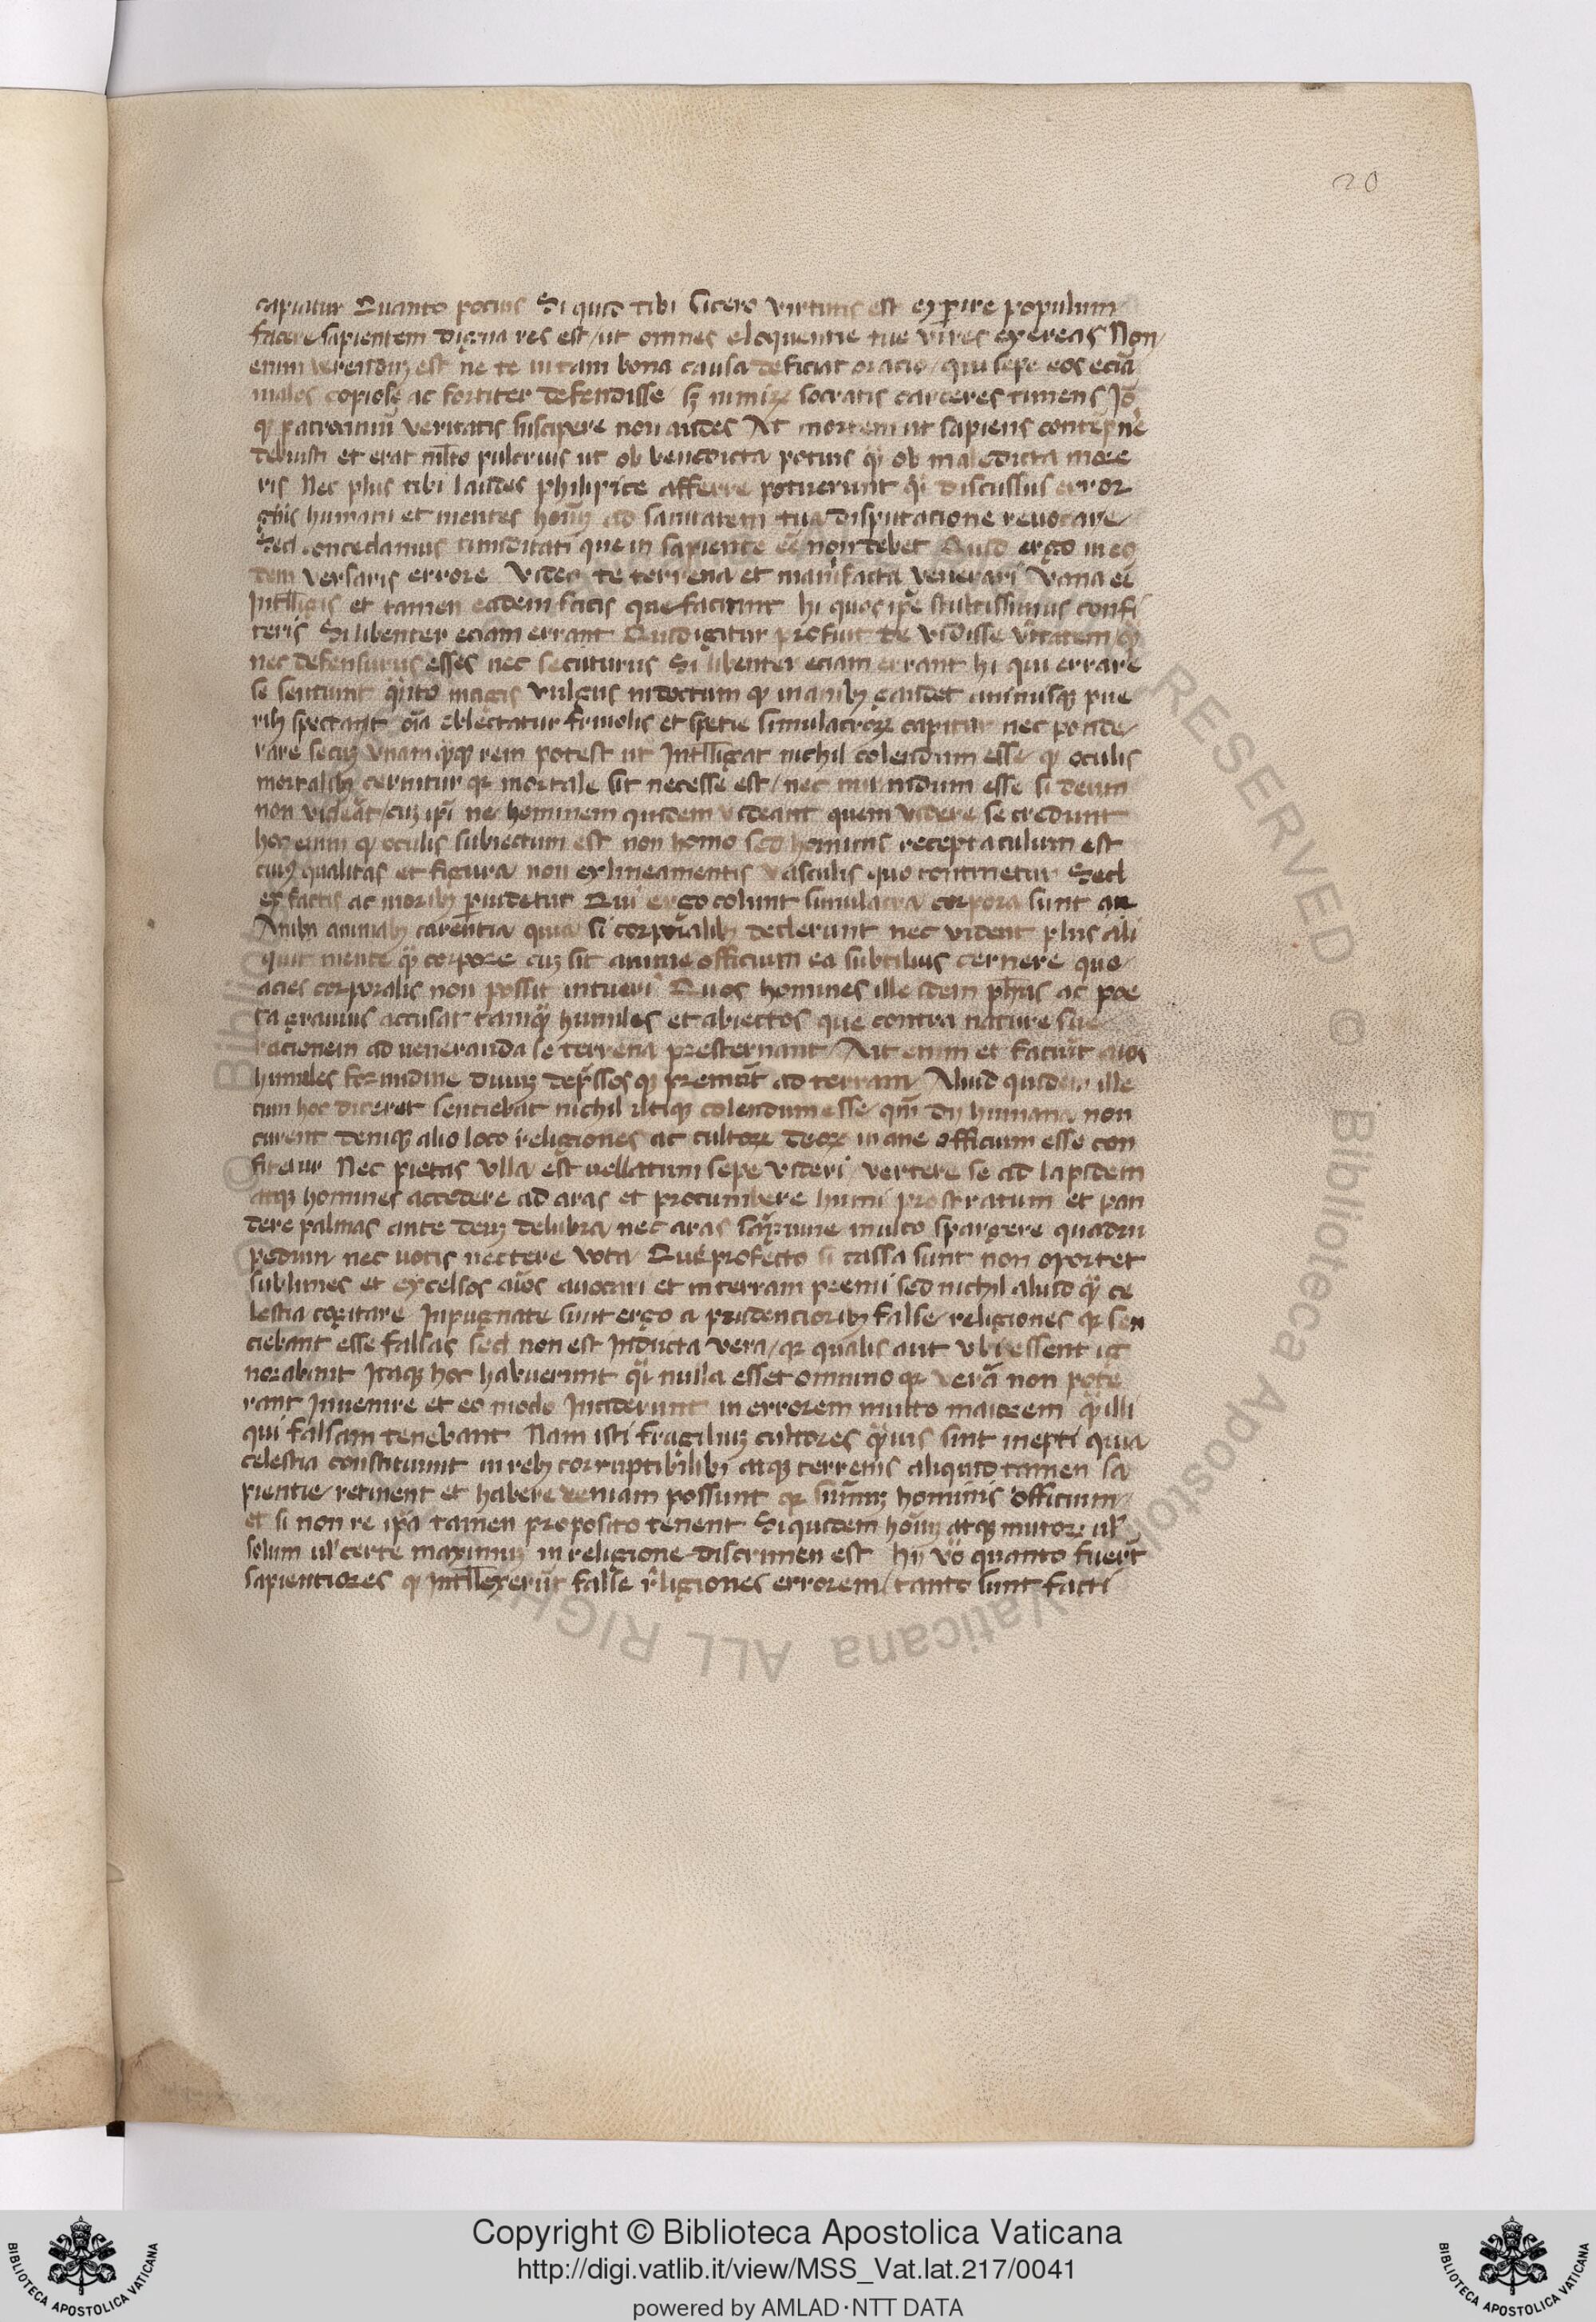 20
capiatur Quanto pocius Si quid tibi Cicero virtutis est experire populum
facere sapientem digna res est / ut omnes eloquentie tue vires exereas Non
enim verendum est ne te in tam bona causa deficiat oracio / qui sepe eos eciā
malos copiose ac fortiter defendisse / sꝫ nimirꝝ socratis carceres timens Jō
ꝙ patrociniū veritatis suscipere non audes At mortem ut sapiens contēpnē
debuisti et erat mlto pulcrius ut ob benedicta pocius q̈ ob maledicta more
ris Nec plus tibi laudes philipice afferre potuerunt q̈ discussus error
gn̄is humani et mentes hoīuꝫ ad sanitatem tua disputacione revocare
Sed concedamus timiditati que in sapiente eē non debet Quid ergo in eo
dem versaris errore Video te terrena et manufacta venerari Vana eē
Intlligis et tamen eadem facis que faciunt hi quos ipē stultissimus confi
teris Si libenter eciam errant Quid igitur profuit te vidisse vitatem / q̄
nec defensurus esses nec secuturus Si libenter eciam errant hi qui errare
se senciunt q̈to magis vulgus indoctum ꝙ inanibꝫ gaudet animisqꝫ pue
rilibꝫ spectant oīa oblectatur frivolis et specie simulacroꝝ capitur nec ponde
rare secum unamqꝫqꝫ rem potest ut Intlligat nichil colendum esse / ꝙ oculis
mortalibꝫ cernitur qꝛ mortale sit necesse est / nec mirandum esse si deum
non videāt / cuꝫ ipī ne hominem quidem videant quem videre se credunt
hoc enim ꝙ oculis subiectum est non homo sed hominis receptaculum est
cuiꝰ qualitas et figura non ex lineamentis vasculis quo continetur Sed
ex factis ac moribꝫ pervidetur Qui ergo colunt simulacra corpora sunt
Anibꝫ animabꝫ carentia quia si corporalibꝫ dederunt nec vident plus ali
quit mente q̈ corpore cuꝫ sit anime officium ea subtilius cernere que
acies corporalis non possit intueri Quos homines ille idem phus ac poe
ta gravius accusat tamq̈ humiles et abiectos que contra nature sue
racionem ad veneranda se terrena presternant Ait enim et faciūt aīos
humiles formidine divuꝫ depssosqꝫ premūt ad terram Aliud quidem ille
cum hoc diceret senciebat nichil utiqꝫ colendum esse / qm dii humana non
curent deniqꝫ alio loco religiones ac cultoꝝ deoꝝ inane officium esse con
fitetur Nec pietas ulla est vellatum sepe videri / vertere se ad lapidem
atqꝫ homines accedere ad aras et procumbere humi prostratum et pan
dere palmas ante deuꝫ delubra nec aras sanguine multo spargere quadru
pedum nec votis nectere vota Que profecto si cassa sunt non oportet
sublimes et excelsos aīos avocari et in terram premi sed nichil aliud q̈ ce
lestia cogitare Inpugnate sunt ergo a prudencioribꝫ false / religiones qꝛ sen
ciebant esse falsas sed non est Inducta vera / qꝛ qualis aut ubi essent ig
norabant Itaqꝫ hoc habuerunt q̄i nulla esset omnino qꝛ verā non pote
rant Invenire et eo modo Inciderunt in errorem multo maiorem q̈ illi
qui falsam tenebant Nam isti fragiliuꝫ cultores q̈vis sint inepti quia
celestia constituunt in rebꝫ corruptibilibꝫ atqꝫ terrenis aliquid tamen sa
pientie / retinent et habere veniam possunt qꝛ summuꝫ hominis officium
et si non re ipā tamen proposito tenent Si quidem hoīuꝫ atqꝫ mutoꝝ ul
solum ul certe maximuꝫ in religione discrimen est hii vo quanto fuerūt
sapientiores ꝙ Intllexerūt false religiones errorem / tanto sunt facti
Copyright © Biblioteca Apostolica Vaticana
http://digi.vatlib.it/view/MSS_Vat.lat.217/0041
powered by AMLAD·NTT DATA